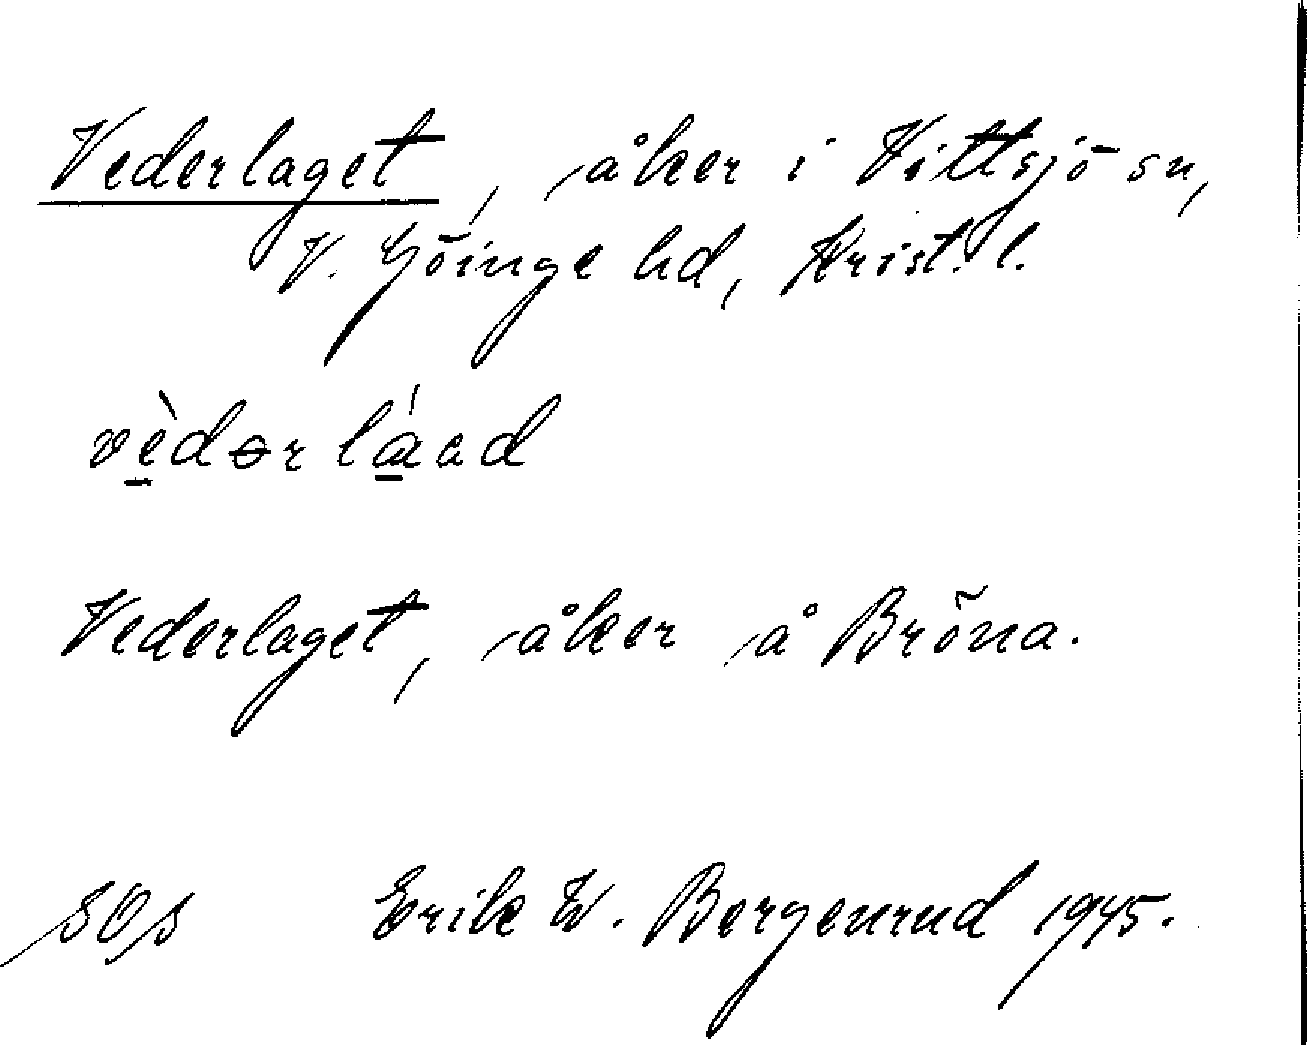 Vederlaget, åker i Vittsjö sn,
V. Göinge hd, Krist. l.
vèdər láad
Vederlaget, åker å Bröna.
SOS Erik W. Bergenrud 1945.